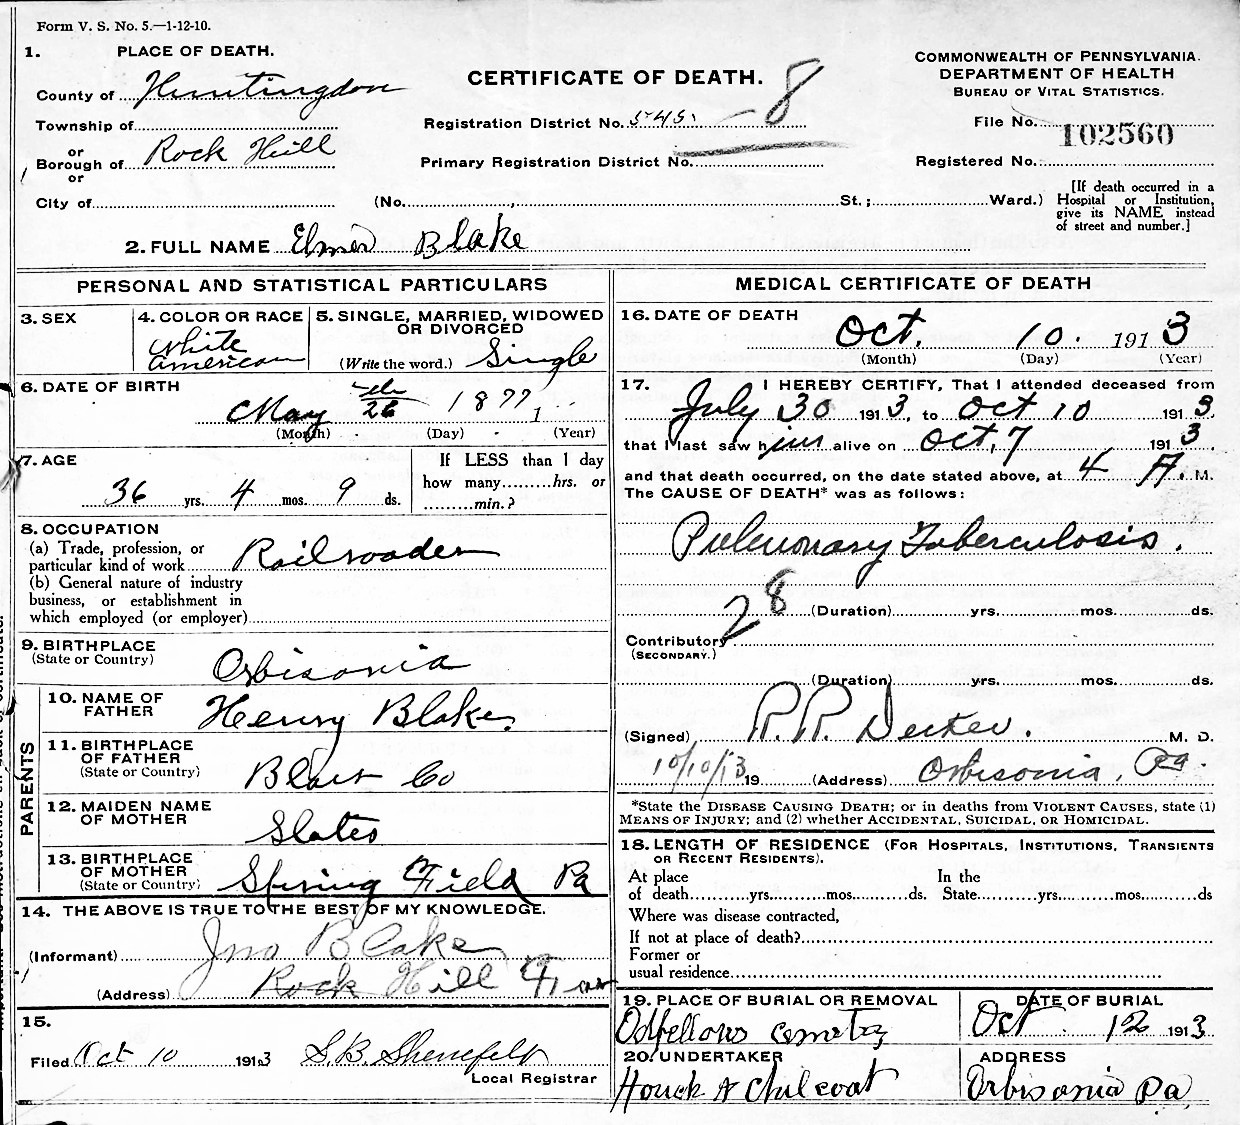 Form V. S. No. 5.—1-12-10.
1. PLACE OF DEATH.
County of Huntingdon
Township of
or
Borough of Rock Hill
or
City of
CERTIFICATE OF DEATH.
Registration District No. 545. - 8
Primary Registration District No.
(No. , St.; Ward.)
COMMONWEALTH OF PENNSYLVANIA.
DEPARTMENT OF HEALTH
BUREAU OF VITAL STATISTICS.
File No. 102560
Registered No.
[If death occurred in a
Hospital or Institution,
give its NAME instead
of street and number.]
2. FULL NAME Elmer Blake
PERSONAL AND STATISTICAL PARTICULARS
3. SEX
4. COLOR OR RACE
White
American
5. SINGLE, MARRIED, WIDOWED
OR DIVORCED
(Write the word.) Single
6. DATE OF BIRTH
May 26 1877
(Month) (Day) (Year)
7. AGE
36 yrs. 4 mos. 9 ds.
If LESS than 1 day
how many hrs. or
min.?
8. OCCUPATION
(a) Trade, profession, or
particular kind of work Railroader
(b) General nature of industry
business, or establishment in
which employed (or employer)
9. BIRTHPLACE
(State or Country) Orbisonia
PARENTS
10. NAME OF
FATHER Henry Blake.
11. BIRTHPLACE
OF FATHER
(State or Country) Blair Co
12. MAIDEN NAME
OF MOTHER Slates
13. BIRTHPLACE
OF MOTHER
(State or Country) Spring Field Pa
14. THE ABOVE IS TRUE TO THE BEST OF MY KNOWLEDGE.
(Informant) Jno Blake
(Address) Rock Hill
15.
Filed Oct 10 1913 S.B. Shenefelt
Local Registrar
MEDICAL CERTIFICATE OF DEATH
16. DATE OF DEATH
Oct. 10. 1913
(Month) (Day) (Year)
17. I HEREBY CERTIFY, That I attended deceased from
July 30 1913, to Oct 10 1913.
that I last saw him alive on Oct, 7 1913.
and that death occurred, on the date stated above, at 4 A. M.
The CAUSE OF DEATH* was as follows:
Pulmonary Tuberculosis.
28
(Duration) yrs. mos. ds.
Contributory
(SECONDARY.)
(Duration) yrs. mos. ds.
(Signed) R. R. Decker. M. D.
10/10/13 19 (Address) Orbisonia, Pa.
*State the DISEASE CAUSING DEATH; or in deaths from VIOLENT CAUSES, state (1)
MEANS OF INJURY; and (2) whether ACCIDENTAL, SUICIDAL, OR HOMICIDAL.
18. LENGTH OF RESIDENCE (FOR HOSPITALS, INSTITUTIONS, TRANSIENTS
OR RECENT RESIDENTS).
At place
of death yrs. mos. ds.
In the
State yrs. mos. ds
Where was disease contracted,
If not at place of death?
Former or
usual residence
19. PLACE OF BURIAL OR REMOVAL
Odfellows cemetry
DATE OF BURIAL
Oct. 12 1913
20. UNDERTAKER
Houck & Chilcoat
ADDRESS
Orbisonia Pa